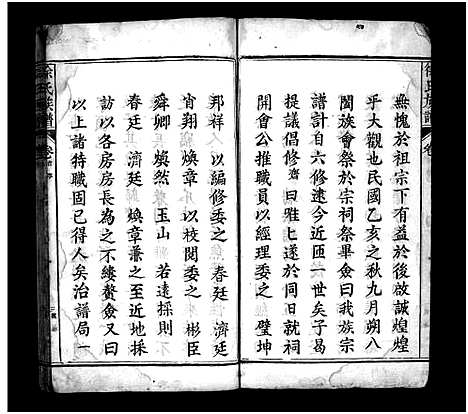 無愧於祖宗下有益於後啟誠煌煌
乎大觀也民國乙亥之秋九月朔八
闔族會祭於宗祠祭畢僉曰我族宗
譜計自六修逮今近匝一世矣子曷
提議續修 僉曰雅上遂於同日就祠
開會公推職員以經理委之 璧坤
邦祥 以編修委之 春廷 濟廷
肯翔 煥章 以校閱委之 彬臣
舜卿 煥然 玉山 若遠採則
春廷 濟廷 煥章兼之至近地採
訪以各房房長為之不縷贅僉又曰
以上諸特職固已得人矣治譜局一
徐氏族譜